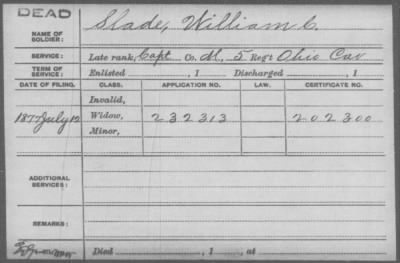 DEAD
NAME OF SOLDIER: Slade, William C.
SERVICE: Late rank, Capt Co. M, 5 Reg't Ohio Cav
TERM OF SERVICE: Enlisted , 1 Discharged , 1
DATE OF FILING. CLASS. APPLICATION NO. LAW. CERTIFICATE NO.
Invalid,
1877 July 12 Widow, 232313 202300
Minor,
ADDITIONAL SERVICES:
REMARKS:
Died , 1 , at